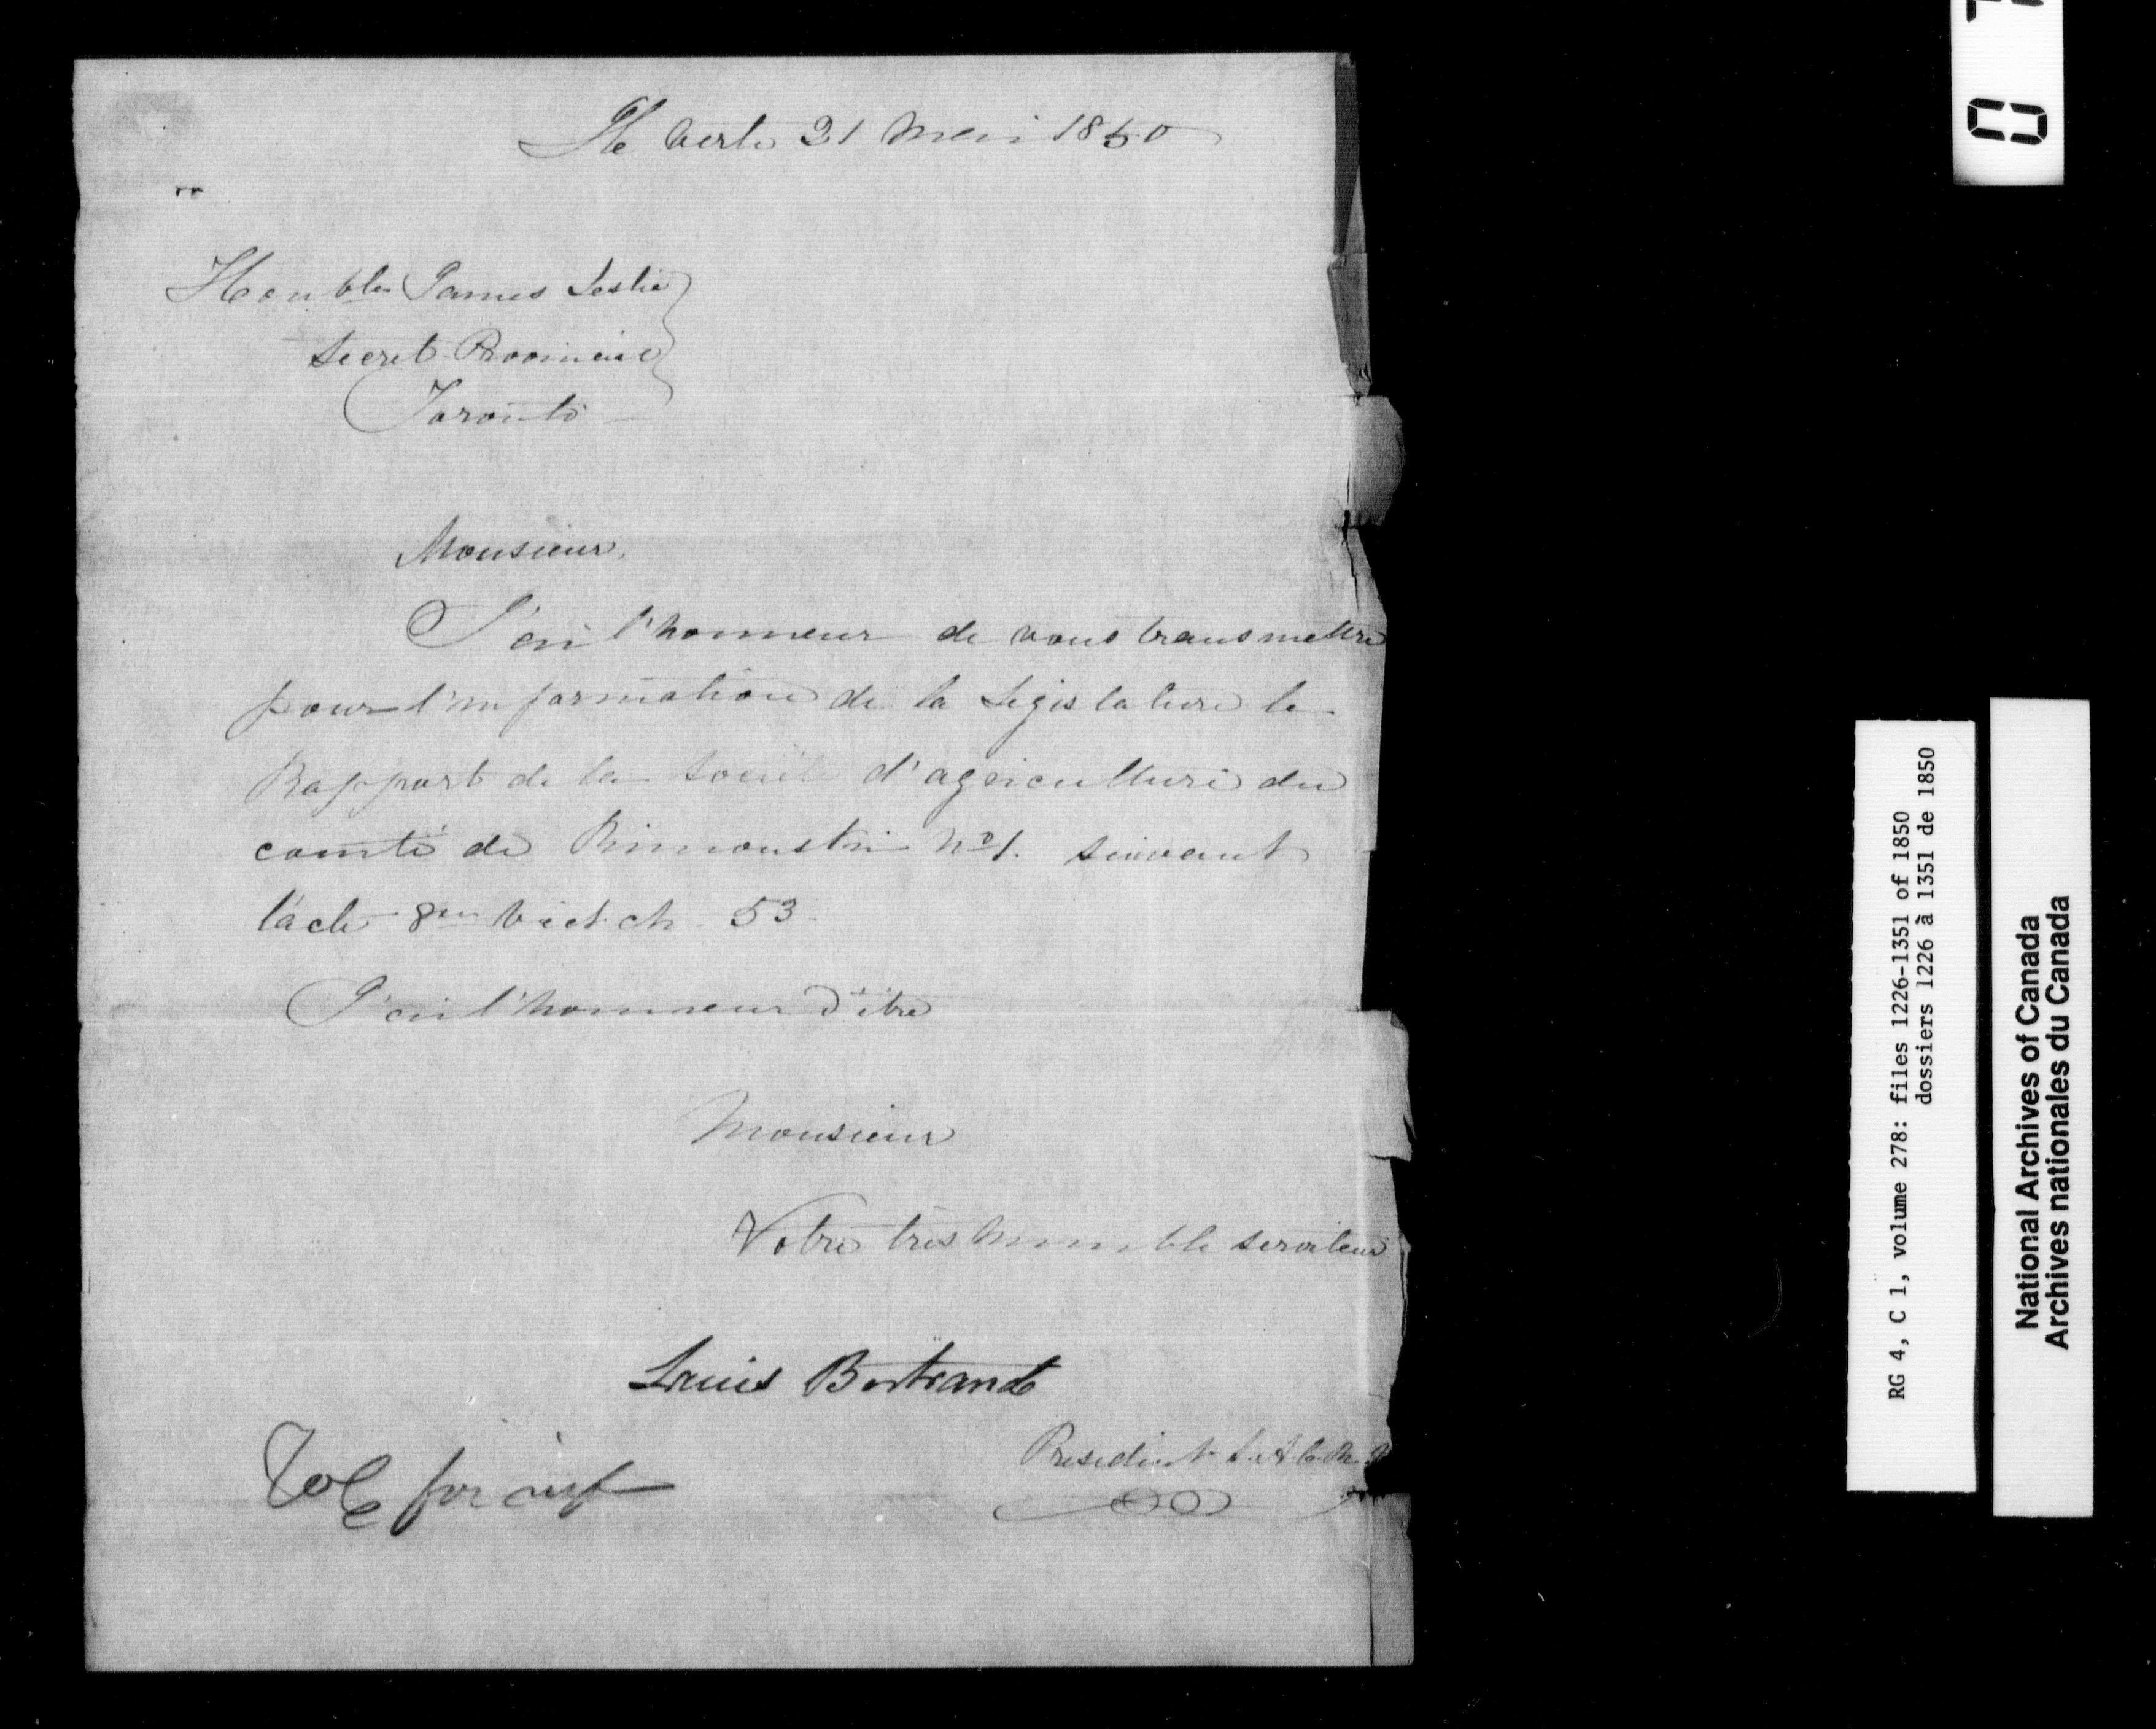 Ile Verte 21 Mai 1850
Honble James Leslie
Secret. Provincial
Toronto
Monsieur.
J'ai l'honneur de vous transmettre
pour l'information de la Législature le
Rapport de la Société d'agriculture du
comté de Rimouski No 1. suivant
l'acte 8me Vict. ch. 53.
J'ai l'honneur d'être
Monsieur
Votre très humble serviteur
Louis Bertrand
Président S. A. C. R.
RG 4, C 1, volume 278: files 1226-1351 of 1850
dossiers 1226 à 1351 de 1850
National Archives of Canada
Archives nationales du Canada